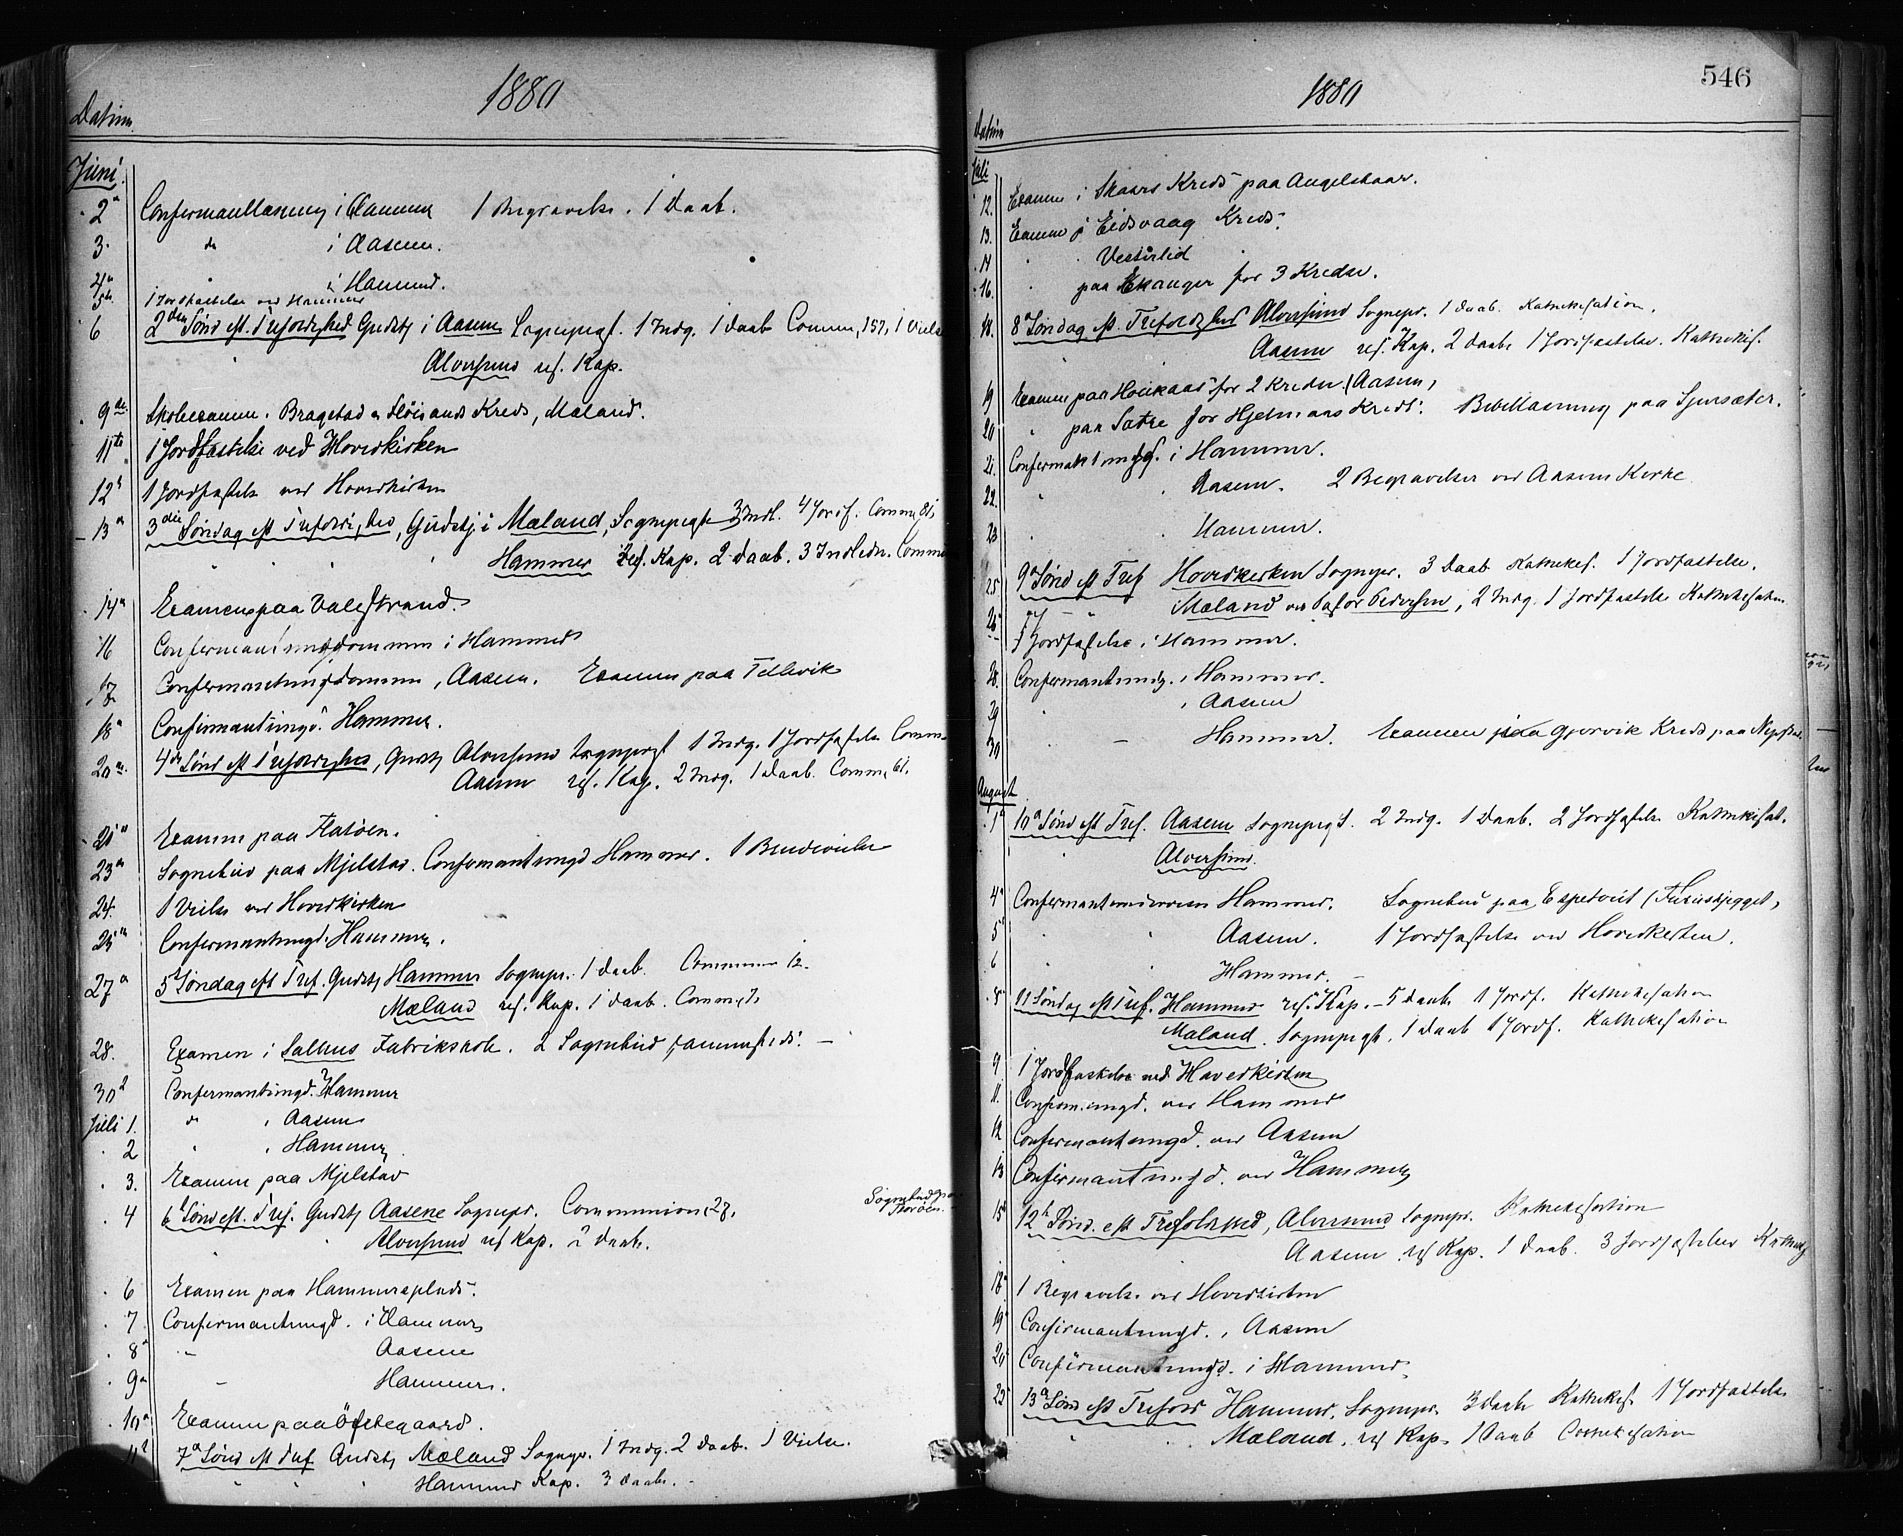 1880
Datum
Juni.
2 Confermantlæsning i Hammer 1 Begravelse. 1 Daab.
3. do i Aasene.
4 " i Hammer.
5te 1 Jordfæstelse ved Hammer
6 2den Sønd. eft. Trefoldighed Gudstj. i Aasene Sognepræst. 1 Indg. 1 Daab Commu. 157, 1 Vielse
" Alversund res. Kap.
9de Skoleexamen. Bragstad Kreds, Mæland.
11te 1 Jordfæstelse ved Hovedkirken
12 1 Jordfæstelse ved Hovedkirken
13 3die Søndag eft Trefoldighed, Gudstj. i Mæland, Sognepræst 3 Indl. 4 Jordf. Comm. 81
Hammer res. Kap. 2 Daab. 3 Indledn. Commu
14 Examen paa Valestrand.
16 Confermantungdommen i Hammer
17 Confermantungdommen, Aasene. Examen paa Tellevik
18 Confirmantungd. Hammer.
20 4de Sønd eft Trefoldighed, Gudstj Alversund Sognepræst 1 Indg. 1 Jordfæstelse Comm
Aasene res. Kap. 2 Indg. 1 Daab. Comm. 61.
21 Examen paa Flatøen.
23 Sognebud paa Mjelstad. Confermantungd Hammer. 1 Brudevielse
24. 1 Vielse ved Hovedkirken
25 Confermantungd. Hammer.
27 5 Søndag eft Tref. Gudstj Hammer Sognepr. 1 Daab. Commun 12.
Mæland res. Kap. 1 Daab. Comm.
28. Examen i Salhus Fabrikskole. 2 Sognebud sammesteds. —
30 Confermantungd. Hammer
Juli 1. do Aasene
2 " Hammer
3. Examen paa Mjelstad
4 6 Sønd eft. Tref. Gudstj Aasene Sognepr. Communion 27. Sognebud paa
Alversund res Kap. 2 Daab.
6 Examen paa Hammersplads.
7. Confermantungd. i Hammer
8 " Aasene
9 " Hammer.
10 Examen paa Øfstegaard.
11 7 Sønd eft Tref Gudstj Mæland Sognepr. 1 Indg. 2 Daab. 1 Vielse.
Hammer Kap. 3 Daab. -
1880
546
Datum
Juli
12. Examen i Skaars Kreds paa Angelskaar.
13. Examen i Eidsvaag Kreds.
14 " Vestrelid
16. " paa Ekanger for 3 Kredse.
18. 8 Søndag eft. Trefoldighed Alversund Sognepr. 1 Daab. Katekisation.
Aasene res. Kap. 2 Daab. 1 Jordfæstelse. Katekis.
19 Examen paa Haukaas for 2 Kredse (Aasene)
20 " paa Sætre for Hjelmaas Kreds. Bibellæsning paa Sjursæter.
21. Confermantungd. i Hammer.
22. " Aasene. 2 Begravelser ved Aasene Kirke
23 " Hammer.
25 9 Sønd eft Tref Hovedkirken Sognepr. 3 Daab Katekis. 1 Jordfæstelse.
Mæland ved Pastor Pedersen, 2 Indg. 1 Jordfæstelse Katekisation
26 1 Jordfæstelse i Hammer.
28. Confermantundg. i Hammer.
29 " Aasene
30 " — Hammer. Examen Gjervik Kreds paa
August
1 10 Sønd eft Tref. Aasene Sognepræst. 2 Indg. 1 Daab. 2 Jordfæstelse Katekisat.
" Alversund.
4 Confermantunderviisn Hammer. Sognebud paa Espetveit
5 " Aasene. 1 Jordfæstelse ved Hovedkirken.
6 " Hammer. —
8 11 Søndag eft Tref. Hammer res. Kap. - 5 Daab 1 Jordf. Katekisation
Mæland. Sognepræst. 1 Daab 1 Jordf. Katekisation
9 1 Jordfæstelse ved Hovedkirken
11. Conferm.ungd. ved Hammer
12 Confermantungd. ved Aasene
13 Confirmantungd. ved Hammer
15 12te Sønd. eft Trefoldighed, Alversund Sognepr. Katekisation
Aasene res Kap. 1 Daab. 3 Jordfæstelser Katek
18 1 Begravelse ved Hovedkirken
19 Confirmantungd. i Aasene
20 Confirmantungd. i Hammer.
22 13 Sønd eft Trefold Hammer. Sognepr. 3 Daab Katekis. 1 Jordfæstelse
Mæland, res Kap. 1 Daab Catekisation